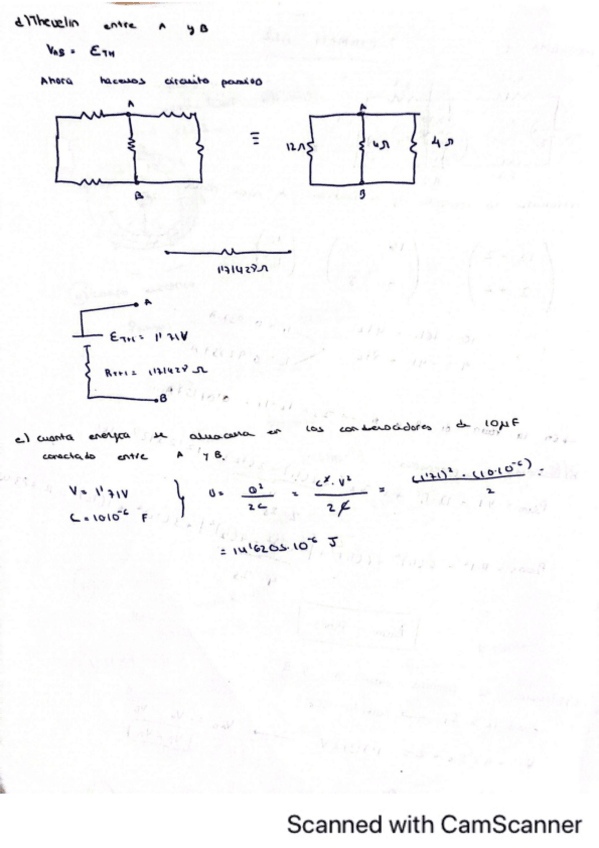 d) Thevelin entre A y B
VAB = ETH
Ahora hacemos circuito pasivo
A
A
≡
12Ω
4Ω
B
B
1'71428Ω
A
ETH = 1'71V
RTH = 1'71428 Ω
B
e) cuanta energía se almacena en los condensadores de 10µF
conectado entre A y B.
V = 1'71V
C = 10 10⁻⁶ F
U = Q²/2C = C² · V²/2C = (1'71)² · (10·10⁻⁶)/2 =
= 14'6205·10⁻⁶ J
Scanned with CamScanner